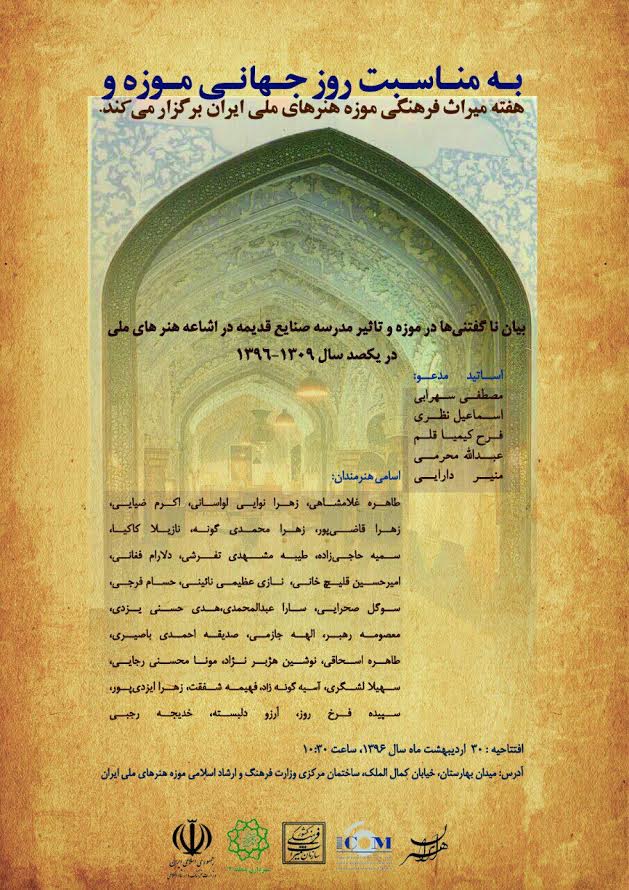 به مناسبت روز جهانی موزه و
هفته میراث فرهنگی موزه هنرهای ملی ایران برگزار می‌کند.
بیان نا گفتنی‌ها در موزه و تاثیر مدرسه صنایع قدیمه در اشاعه هنر های ملی
در یکصد سال ۱۳۰۹-۱۳۹۶
اساتید مدعو:
مصطفی سهرابی
اسماعیل نظری
فرح کیمیا قلم
عبدالله محرمی
منیر دارایی
اسامی هنرمندان:
طاهره غلامشاهی، زهرا نوایی لواسانی، اکرم ضیایی،
زهرا قاضی‌پور، زهرا محمدی گونه، نازیلا کاکیا،
سمیه حاجی‌زاده، طیبه مشهدی تفرشی، دلارام فغانی،
امیرحسین قلیچ خانی، نازی عظیمی نائینی، حسام فرجی،
سوگل صحرایی، سارا عبدالمحمدی،هدی حسنی یزدی،
معصومه رهبر، الهه جازمی، صدیقه احمدی باصیری،
طاهره اسحاقی، نوشین هژبر نژاد، مونا محسنی رجایی،
سهیلا لشگری، آسیه گونه زاد، فهیمه شفقت، زهرا ایزدی‌پور،
سپیده فرخ روز، آرزو دلبسته، خدیجه رجبی
افتتاحیه : ۳۰ اردیبهشت ماه سال ۱۳۹۶، ساعت ۱۰:۳۰
آدرس: میدان بهارستان، خیابان کمال الملک، ساختمان مرکزی وزارت فرهنگ و ارشاد اسلامی موزه هنرهای ملی ایران
جمهوری اسلامی ایران
ICOM